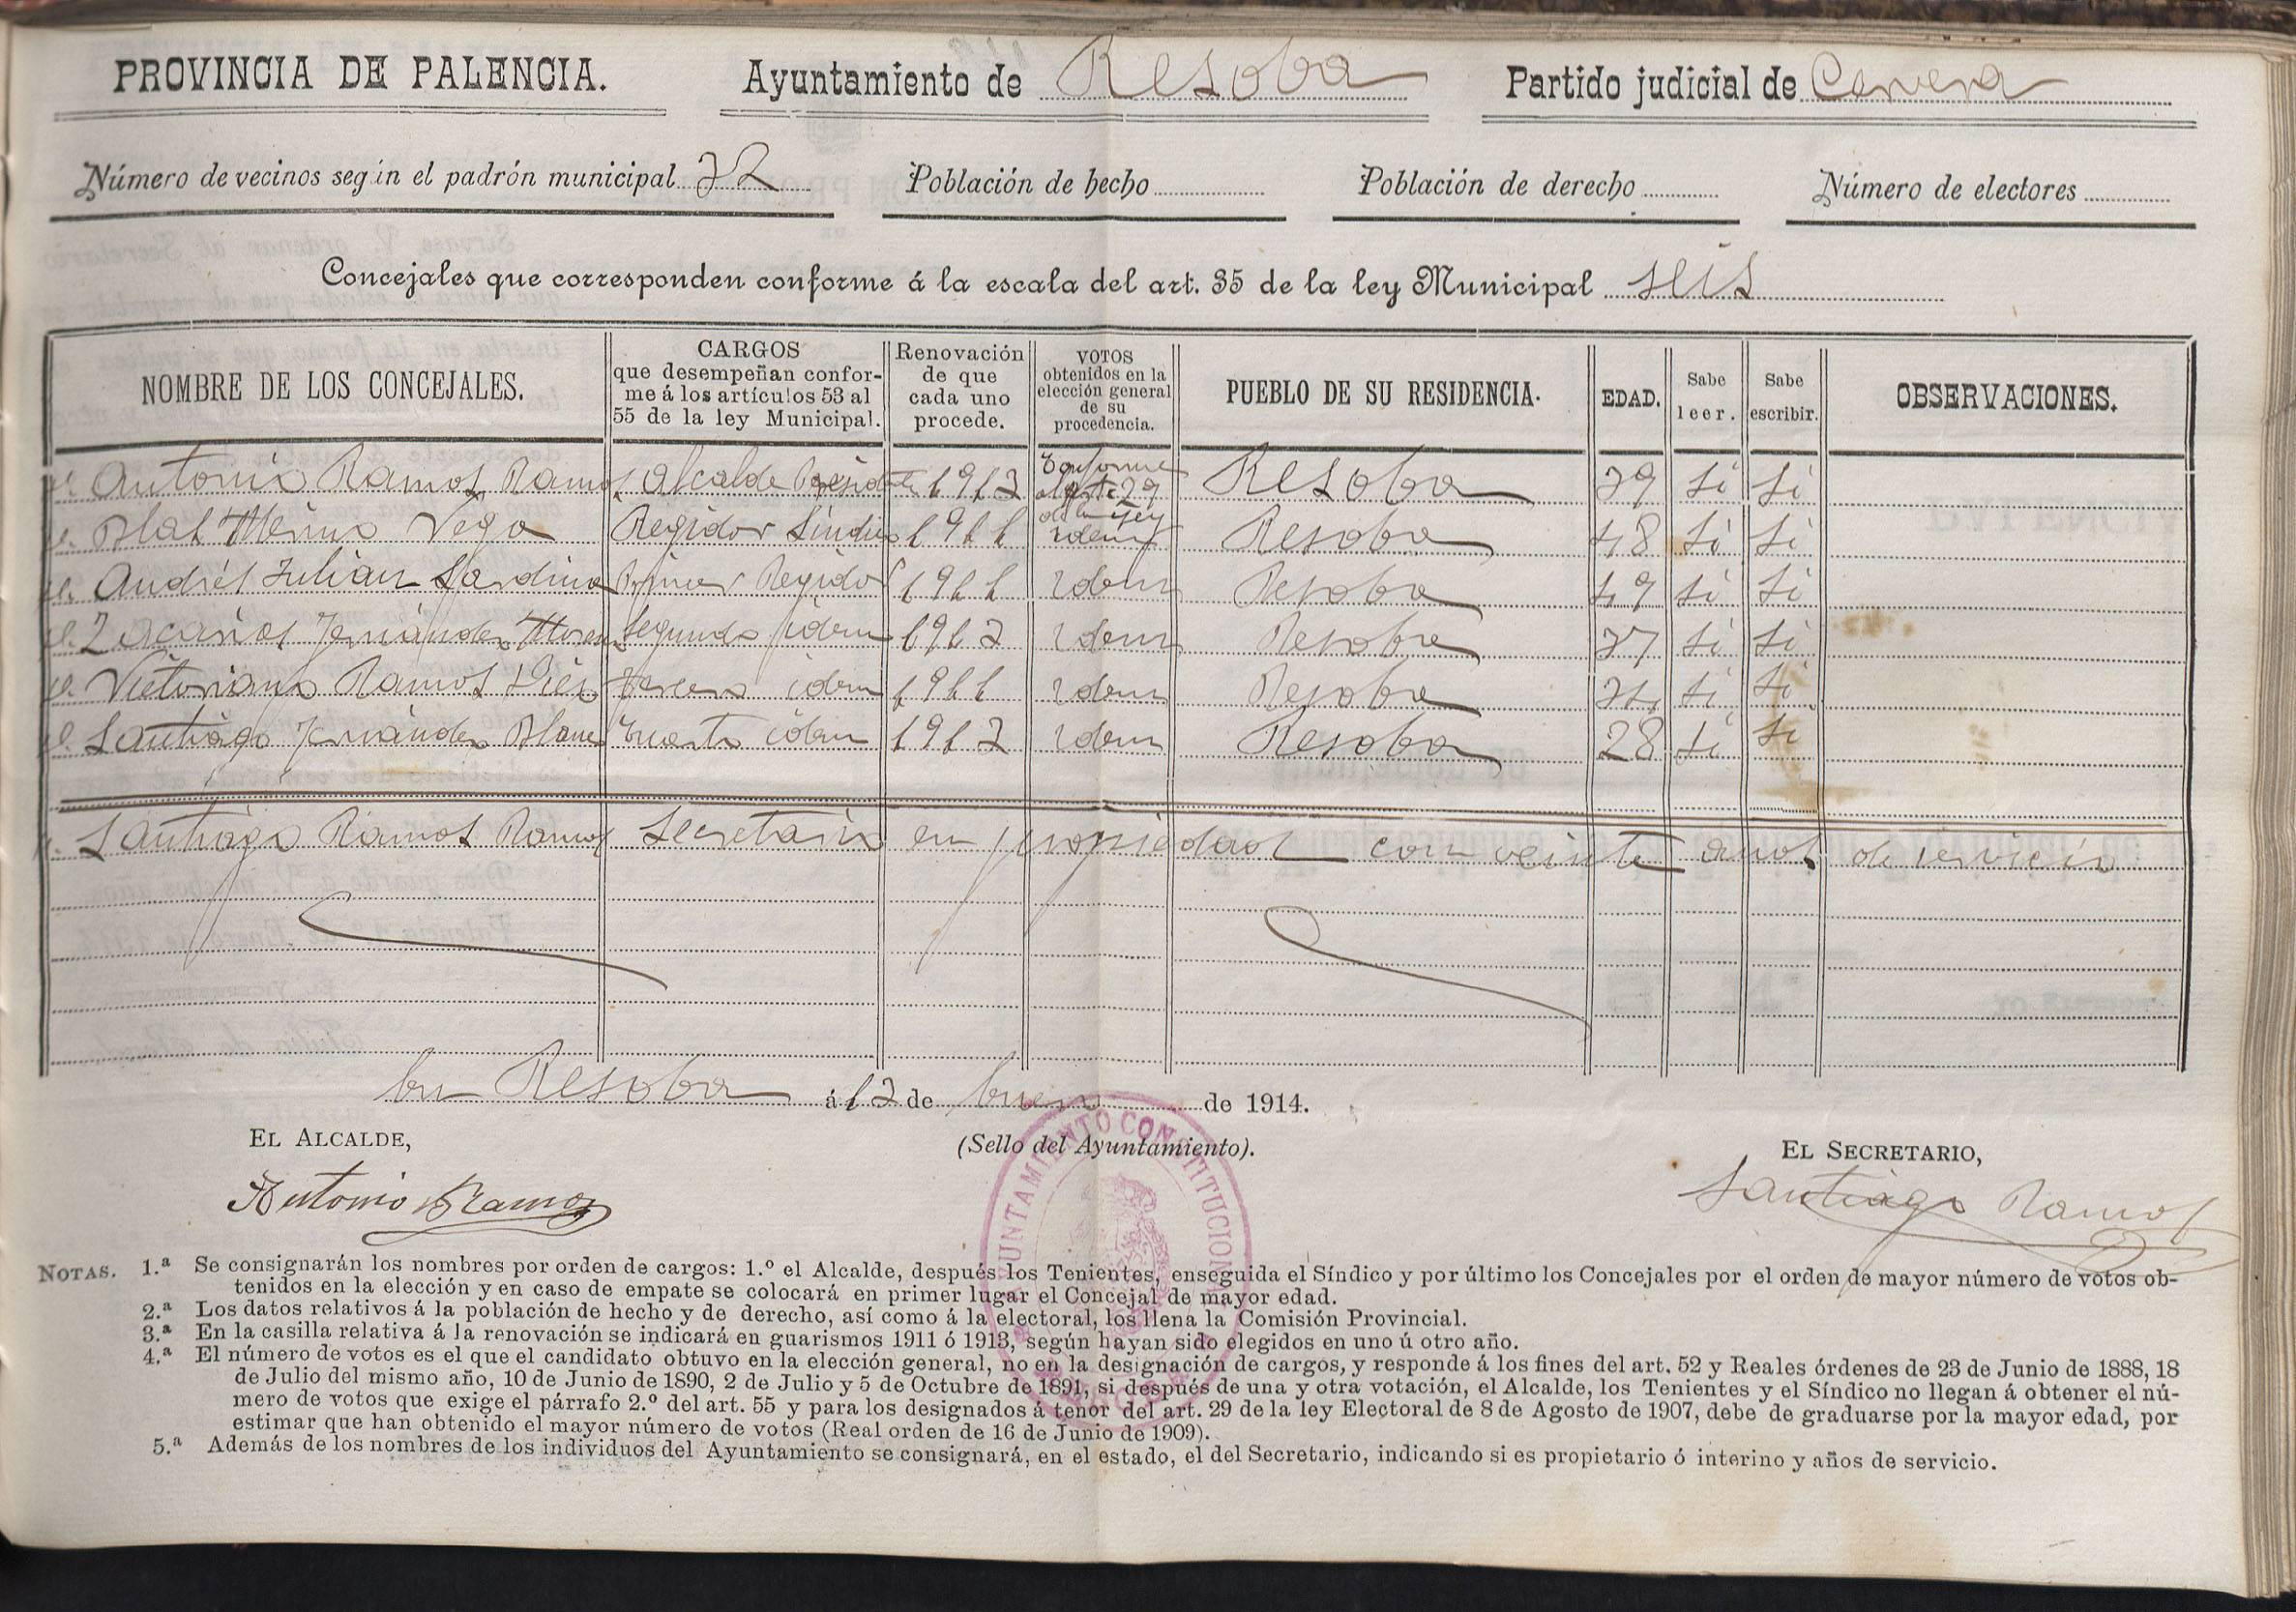 PROVINCIA DE PALENCIA. Ayuntamiento de Resoba Partido judicial de Cervera
Número de vecinos según el padrón municipal 32 Población de hecho Población de derecho Número de electores
Concejales que corresponden conforme á la escala del art. 35 de la ley Municipal seis
NOMBRE DE LOS CONCEJALES. CARGOS que desempeñan conforme á los artículos 53 al 55 de la ley Municipal. Renovación de que cada uno procede. VOTOS obtenidos en la elección general de su procedencia. PUEBLO DE SU RESIDENCIA. EDAD. Sabe leer. Sabe escribir. OBSERVACIONES.
Antonio Ramos Ramos Alcalde Presidente 1913 Conforme al art. 29 de la ley Resoba 39 si si
Blas Merino Vega Regidor Síndico 1911 idem Resoba 48 si si
Andrés Julián Sardina Primer Regidor 1911 idem Resoba 49 si si
Zacarías Fernández Segundo idem 1913 idem Resoba 37 si si
Victoriano Ramos Diez Tercero idem 1911 idem Resoba si si
Santiago Fernández Blanco Cuarto idem 1913 idem Resoba 28 si si
Santiago Ramos Ramos Secretario en propiedad con veinte años de servicio
En Resoba á 13 de Enero de 1914.
EL ALCALDE, (Sello del Ayuntamiento). EL SECRETARIO,
Antonio Ramos Santiago Ramos
AYUNTAMIENTO CONSTITUCIONAL
NOTAS. 1.ª Se consignarán los nombres por orden de cargos: 1.º el Alcalde, después los Tenientes, enseguida el Síndico y por último los Concejales por el orden de mayor número de votos ob-
tenidos en la elección y en caso de empate se colocará en primer lugar el Concejal de mayor edad.
2.ª Los datos relativos á la población de hecho y de derecho, así como á la electoral, los llena la Comisión Provincial.
3.ª En la casilla relativa á la renovación se indicará en guarismos 1911 ó 1913, según hayan sido elegidos en uno ú otro año.
4.ª El número de votos es el que el candidato obtuvo en la elección general, no en la designación de cargos, y responde á los fines del art. 52 y Reales órdenes de 23 de Junio de 1888, 18
de Julio del mismo año, 10 de Junio de 1890, 2 de Julio y 5 de Octubre de 1891, si después de una y otra votación, el Alcalde, los Tenientes y el Síndico no llegan á obtener el nú-
mero de votos que exige el párrafo 2.º del art. 55 y para los designados á tenor del art. 29 de la ley Electoral de 8 de Agosto de 1907, debe de graduarse por la mayor edad, por
estimar que han obtenido el mayor número de votos (Real orden de 16 de Junio de 1909).
5.ª Además de los nombres de los individuos del Ayuntamiento se consignará, en el estado, el del Secretario, indicando si es propietario ó interino y años de servicio.